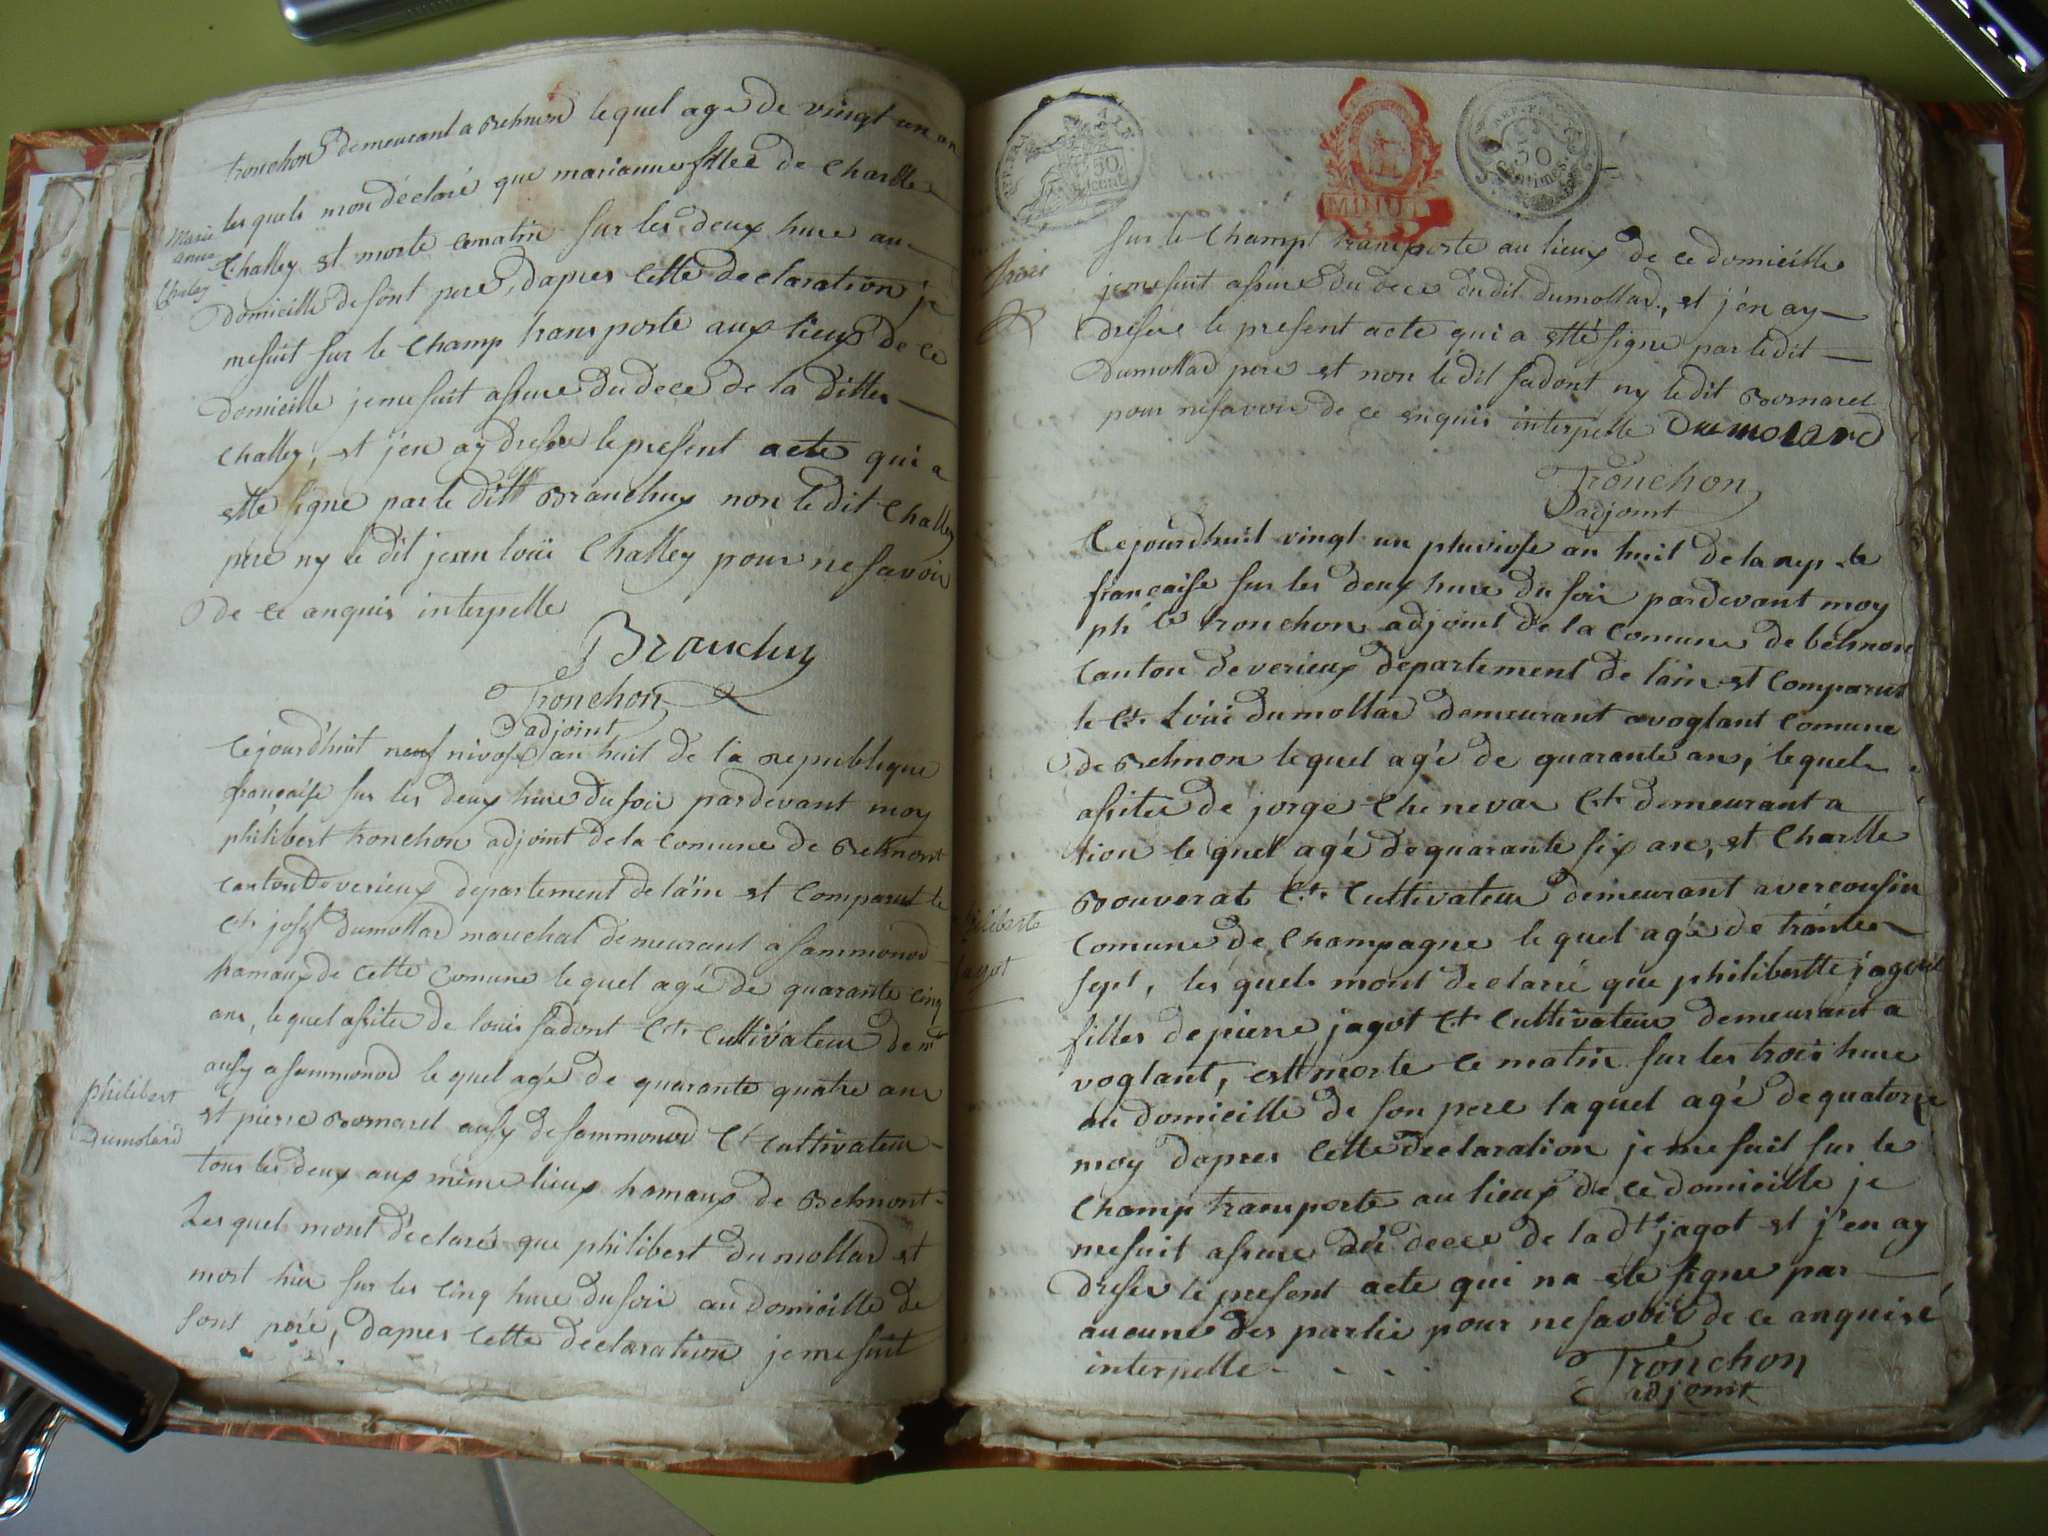 tronchon demeurant a Belmon lequel agé de vingt un an
les quels mon déclaré que marianne fillee de Charlle
Marie
anne
Chaley
Challey et morte cematin sur les deux hure au
domicille de sont pere, dapres cette declaration je
mesuit sur le champ transporte aux lieux de ce
domicille jemesuit assure du dece de la ditte
challey, et j'en ay dresse le present acte qui a
ette signe par le ditt Brauchuy non le dit challey
pere ny le dit jean louïs Challey pour ne savoir
de ce anquis interpelle
Brauchuy
Tronchon
adjoint
Cejourd'huit neuf nivose an huit de la republique
française sur les deux hure du soir pardevant moy
philibert tronchon adjoint de la Comune de Belmont
canton de verieux departement de l'ain et Comparut le
Ct. josf dumollard marechal demeurant a sammonod
hamaux de cette comune lequel agé de quarante cinq
ans, lequel assites de louis fadont Ct. cultivateur dem.t
aussy a sammonod lequel agé de quarante quatre ans
philibert
Dumolard
et pierre Bornarel aussy de sammonod Ct cultivateur
tous les deux aux même lieux hamaux de Belmont
Lesquel mont déclarés que philibert dumollard et
mort hier sur les cinq hure du soir au domicille de
sont père, dapres cette declaration jemesuit
50
cent
MINUT.
50
centimes.
sur le Champ transporte au lieux de ce domicille
trois
jemesuit assure du dece du dit dumollard, et j'en ay
dresse le present acte qui a etté signe par ledit
dumollard pere et non ledit fadont ny le dit Bornarel
pour nesavoir de ce enquis interpelle Dumolard
Tronchon
adjoint
Cejourdhuit vingt un pluviose an huit de la rep. le
française sur les deux hure du soir pardevant moy
ph le tronchon adjoint de la Comune de belmon
Canton de verieux departement de l'ain et Comparut
le Ct. Louis dumollard demeurant a voglant comune
de Belmon lequel agé de quarante an, lequel
assites de jorge Chenevar Ct. demeurant a
lion lequel agé de quarante six ans, et Charlle
Bouverat Ct. Cultivateur demeurant a vercousin
Comune de Champagne lequel agé de trante
philiberte
jagot
sept, les quels mont declaré que philibertte jagot
filles de pierre jagot Ct. cultivateur demeurant a
voglant, est morte ce matin sur les trois hure
au domicille de son pere laquel agé de quatorze
moy dapres cette declaration jemesuit sur le
champ transporte au lieux de ce domicille je
mesuit assure du dece de la dte jagot et j'en ay
dresse le present acte qui na ete signe par
aucune des partie pour nesavoir de ce anquis é
interpelle
Tronchon
adjoint